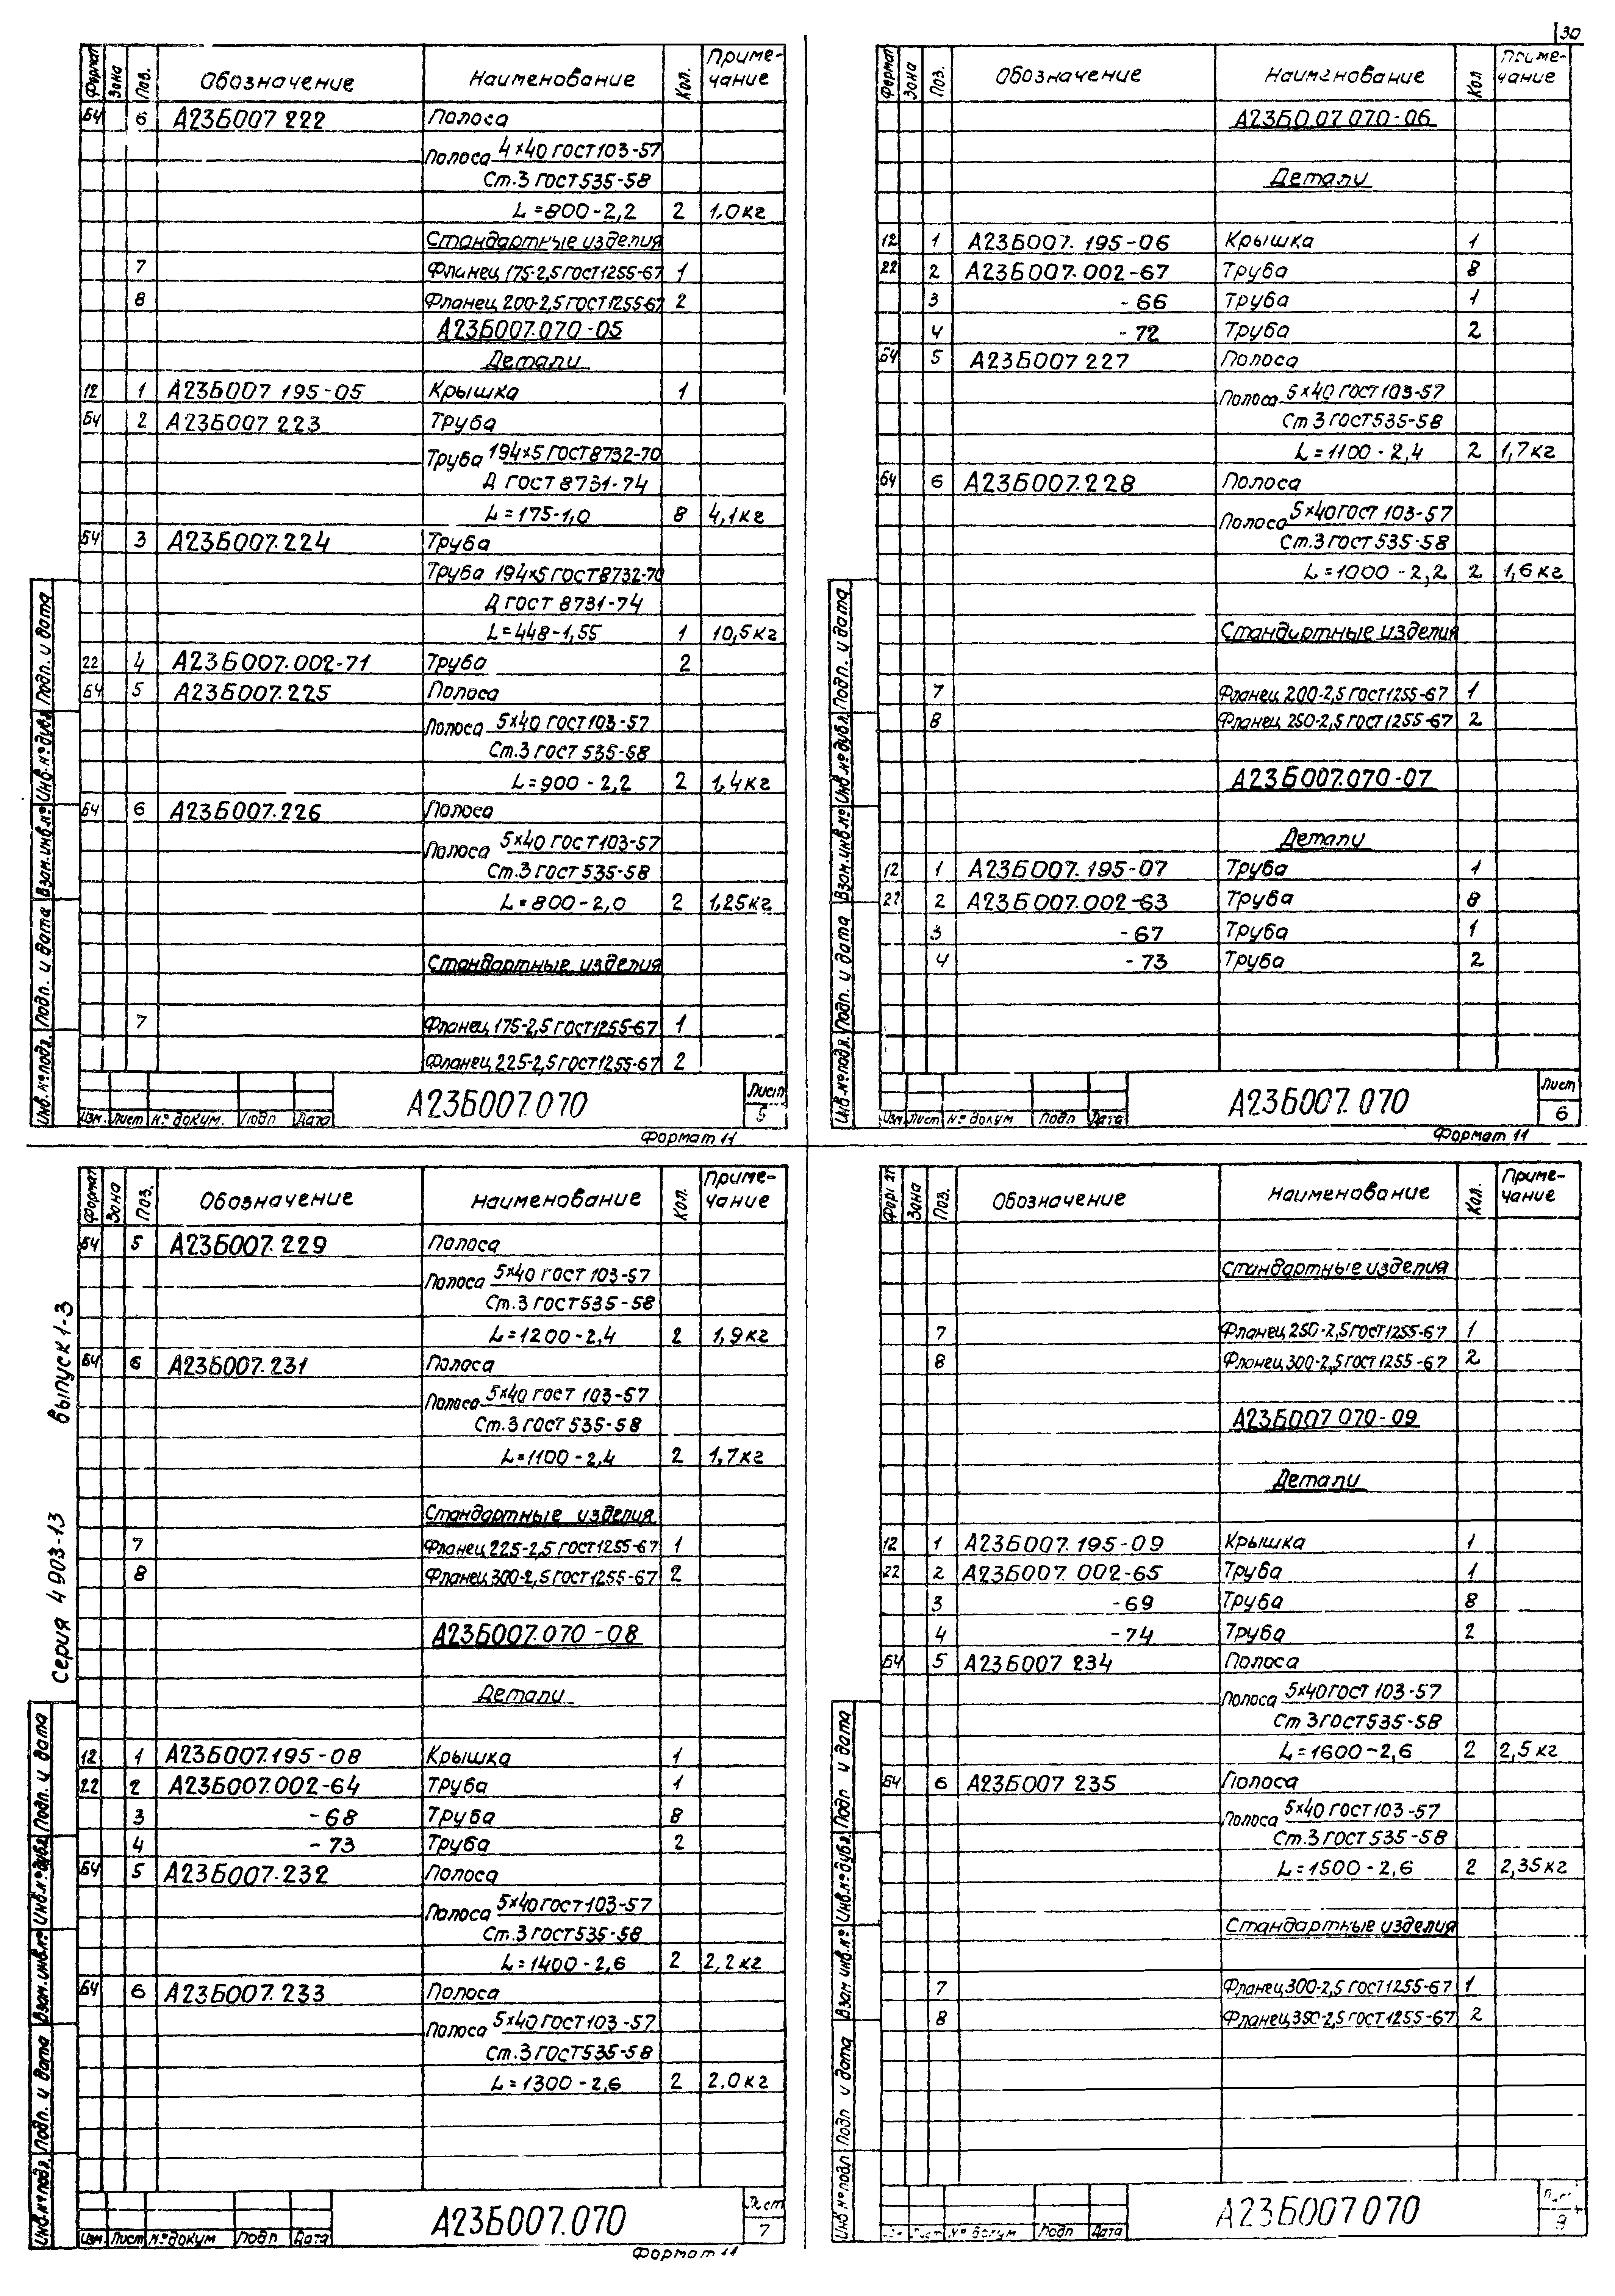 30
Формат Зона Поз. Обозначение Наименование Кол. Приме-
чание
БЧ 6 А23Б007 222 Полоса
Полоса 4×40 ГОСТ 103-57
Ст.3 ГОСТ 535-58
L=800-2,2 2 1,0кг
Стандартные изделия
7 Фланец 175-2,5 ГОСТ 1255-67 1
8 Фланец 200-2,5 ГОСТ 1255-67 2
А23Б007.070-05
Детали
12 1 А23Б007 195-05 Крышка 1
БЧ 2 А23Б007 223 Труба
Труба 194×5 ГОСТ 8732-70
Д ГОСТ 8731-74
L=175-1,0 8 4,1кг
БЧ 3 А23Б007.224 Труба
Труба 194×5 ГОСТ 8732-70
Д ГОСТ 8731-74
L=448-1,55 1 10,5кг
22 4 А23Б007.002-71 Труба 2
БЧ 5 А23Б007.225 Полоса
Полоса 5×40 ГОСТ 103-57
Ст.3 ГОСТ 535-58
L=900-2,2 2 1,4кг
БЧ 6 А23Б007.226 Полоса
Полоса 5×40 ГОСТ 103-57
Ст.3 ГОСТ 535-58
L=800-2,0 2 1,25кг
Стандартные изделия
7 Фланец 175-2,5 ГОСТ 1255-67 1
Фланец 225-2,5 ГОСТ 1255-67 2
Инв.№подл. Подп. и дата Взам.инв.№ Инв.№дубл. Подп. и дата
Изм. Лист №докум. Подп Дата
А23Б007.070
Лист
5
Формат 11
Формат Зона Поз. Обозначение Наименование Кол Приме-
чание
А23Б007 070-06
Детали
12 1 А23Б007.195-06 Крышка 1
22 2 А23Б007.002-67 Труба 8
3 -66 Труба 1
4 -72 Труба 2
БЧ 5 А23Б007 227 Полоса
Полоса 5×40 ГОСТ 103-57
Ст 3 ГОСТ 535-58
L=1100-2,4 2 1,7кг
БЧ 6 А23Б007.228 Полоса
Полоса 5×40 ГОСТ 103-57
Ст.3 ГОСТ 535-58
L=1000-2,2 2 1,6кг
Стандартные изделия
7 Фланец 200-2,5 ГОСТ 1255-67 1
8 Фланец 250-2,5 ГОСТ 1255-67 2
А23Б007.070-07
Детали
12 1 А23Б007.195-07 Труба 1
22 2 А23Б007.002-63 Труба 8
3 -67 Труба 1
4 -73 Труба 2
Инв.№подл. Подп. и дата Взам.инв.№ Инв.№дубл. Подп. и дата
Изм Лист №докум Подп Дата
А23Б007.070
Лист
6
Формат 11
Серия 4 903-13 выпуск 1-3
Формат Зона Поз. Обозначение Наименование Кол. Приме-
чание
БЧ 5 А23Б007.229 Полоса
Полоса 5×40 ГОСТ 103-57
Ст.3 ГОСТ 535-58
L=1200-2,4 2 1,9кг
БЧ 6 А23Б007.231 Полоса
Полоса 5×40 ГОСТ 103-57
Ст.3 ГОСТ 535-58
L=1100-2,4 2 1,7кг
Стандартные изделия
7 Фланец 225-2,5 ГОСТ 1255-67 1
8 Фланец 300-2,5 ГОСТ 1255-67 2
А23Б007.070-08
Детали
12 1 А23Б007.195-08 Крышка 1
22 2 А23Б007.002-64 Труба 1
3 -68 Труба 8
4 -73 Труба 2
БЧ 5 А23Б007.232 Полоса
Полоса 5×40 ГОСТ 103-57
Ст.3 ГОСТ 535-58
L=1400-2,6 2 2,2кг
БЧ 6 А23Б007.233 Полоса
Полоса 5×40 ГОСТ 103-57
Ст.3 ГОСТ 535-58
L=1300-2,6 2 2.0кг
Инв.№подл. Подп. и дата Взам.инв.№ Инв.№дубл. Подп. и дата
Изм. Лист №докум Подп Дата
А23Б007.070
Лист
7
Формат 11
Зона Поз. Обозначение Наименование Кол. Приме-
чание
Стандартные изделия
7 Фланец 250-2,5 ГОСТ 1255-67 1
8 Фланец 300-2,5 ГОСТ 1255-67 2
А23Б007 070-09
Детали
12 1 А23Б007.195-09 Крышка 1
22 2 А23Б007 002-65 Труба 1
3 -69 Труба 8
4 -74 Труба 2
БЧ 5 А23Б007 234 Полоса
Полоса 5×40 ГОСТ 103-57
Ст 3 ГОСТ 535-58
L=1600-2,6 2 2,5 кг
БЧ 6 А23Б007 235 Полоса
Полоса 5×40 ГОСТ 103-57
Ст.3 ГОСТ 535-58
L=1500-2,6 2 2,35кг
Стандартные изделия
7 Фланец 300-2,5 ГОСТ 1255-67 1
8 Фланец 350-2,5 ГОСТ 1255-67 2
Инв №подл Подп и дата Взам инв.№ Инв.№дубл. Подп и дата
Лист №докум Подп Дата
А23Б007 070